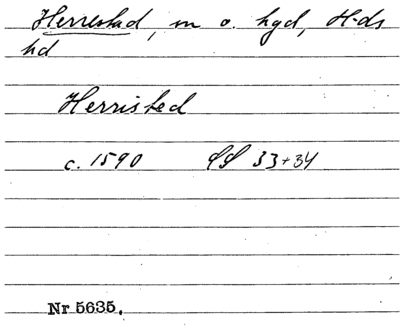 Herrestad, sn o. hgd, H-ds
hd
Herristed
c. 1590 33+34
Nr 5635.